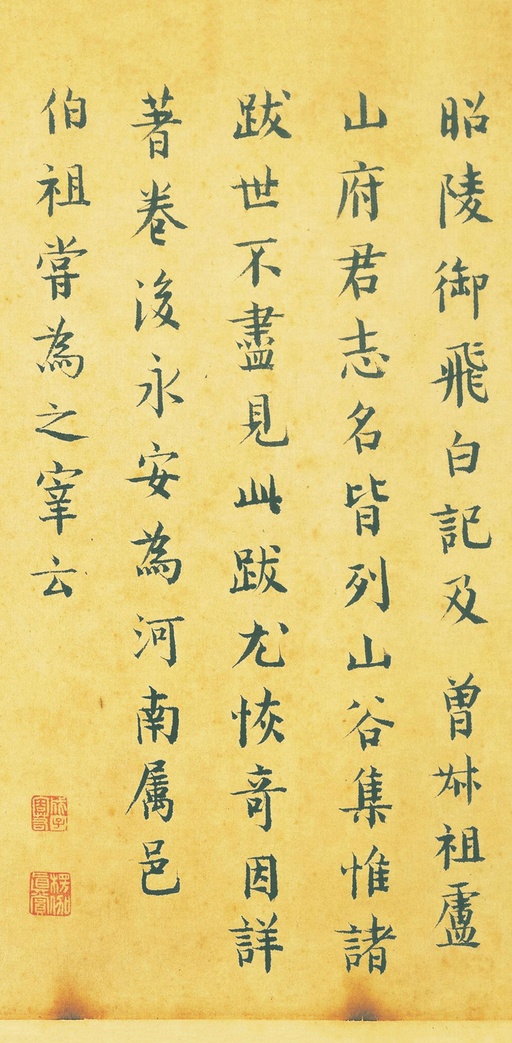 昭陵御飛白記及 曾叔祖盧
山府君志名皆列山谷集惟諸
跋世不盡見此跋尤恢奇因詳
著卷後永安為河南屬邑
伯祖嘗為之宰云
楞伽真賞